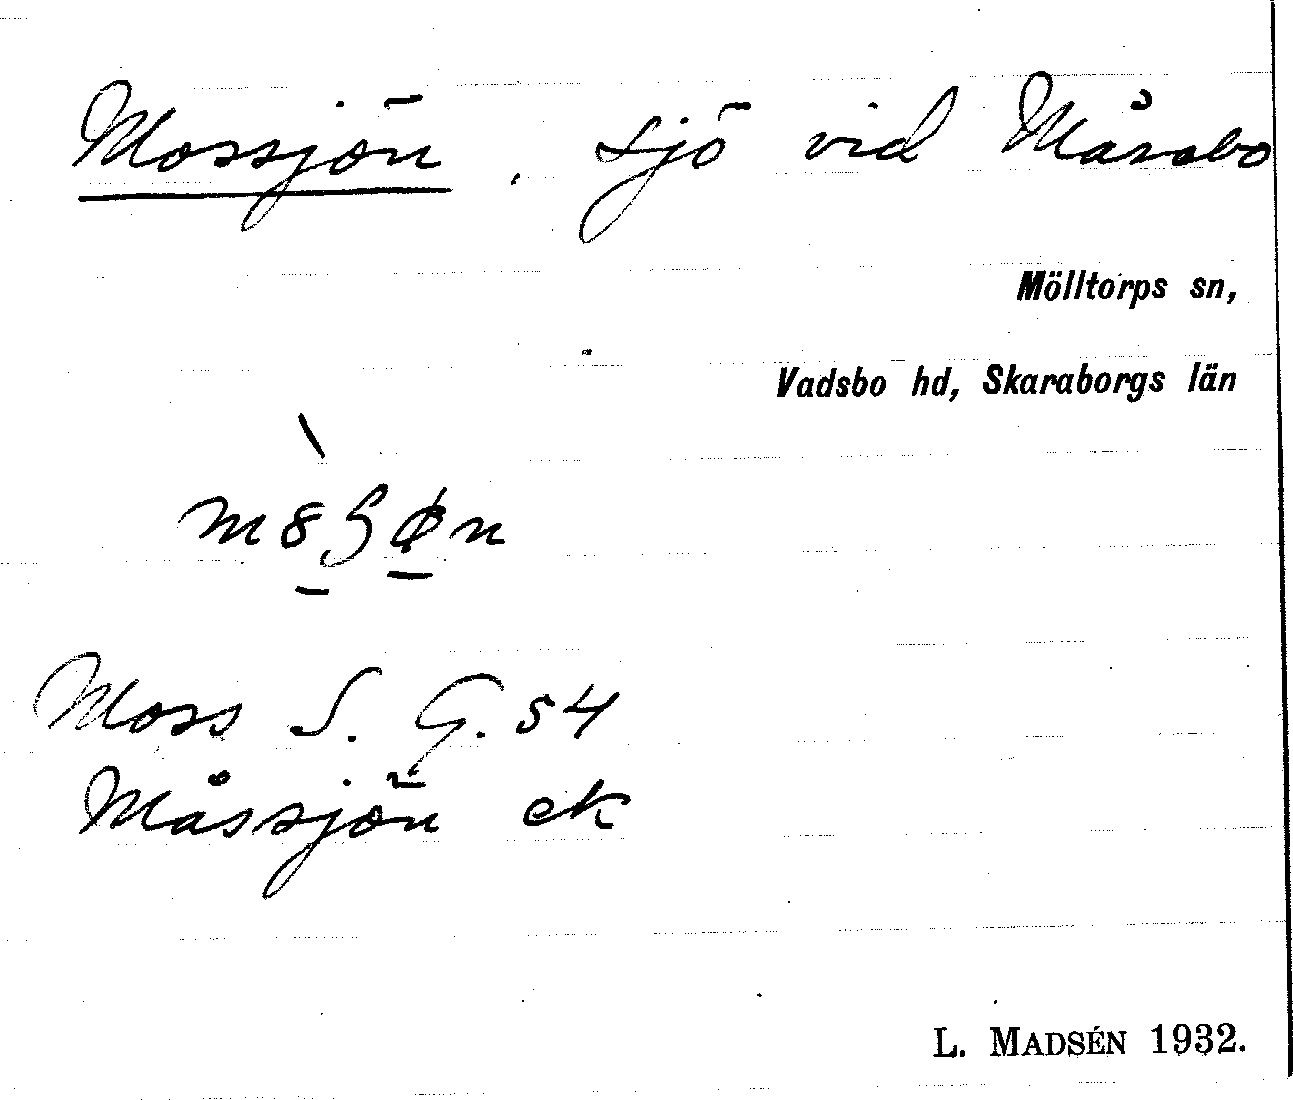 Mossjön, sjö vid Måsebo
Mölltorps sn,
Vadsbo hd, Skaraborgs län
Moss S. G. 54
Måssjön ek
L. MADSÉN 1932.